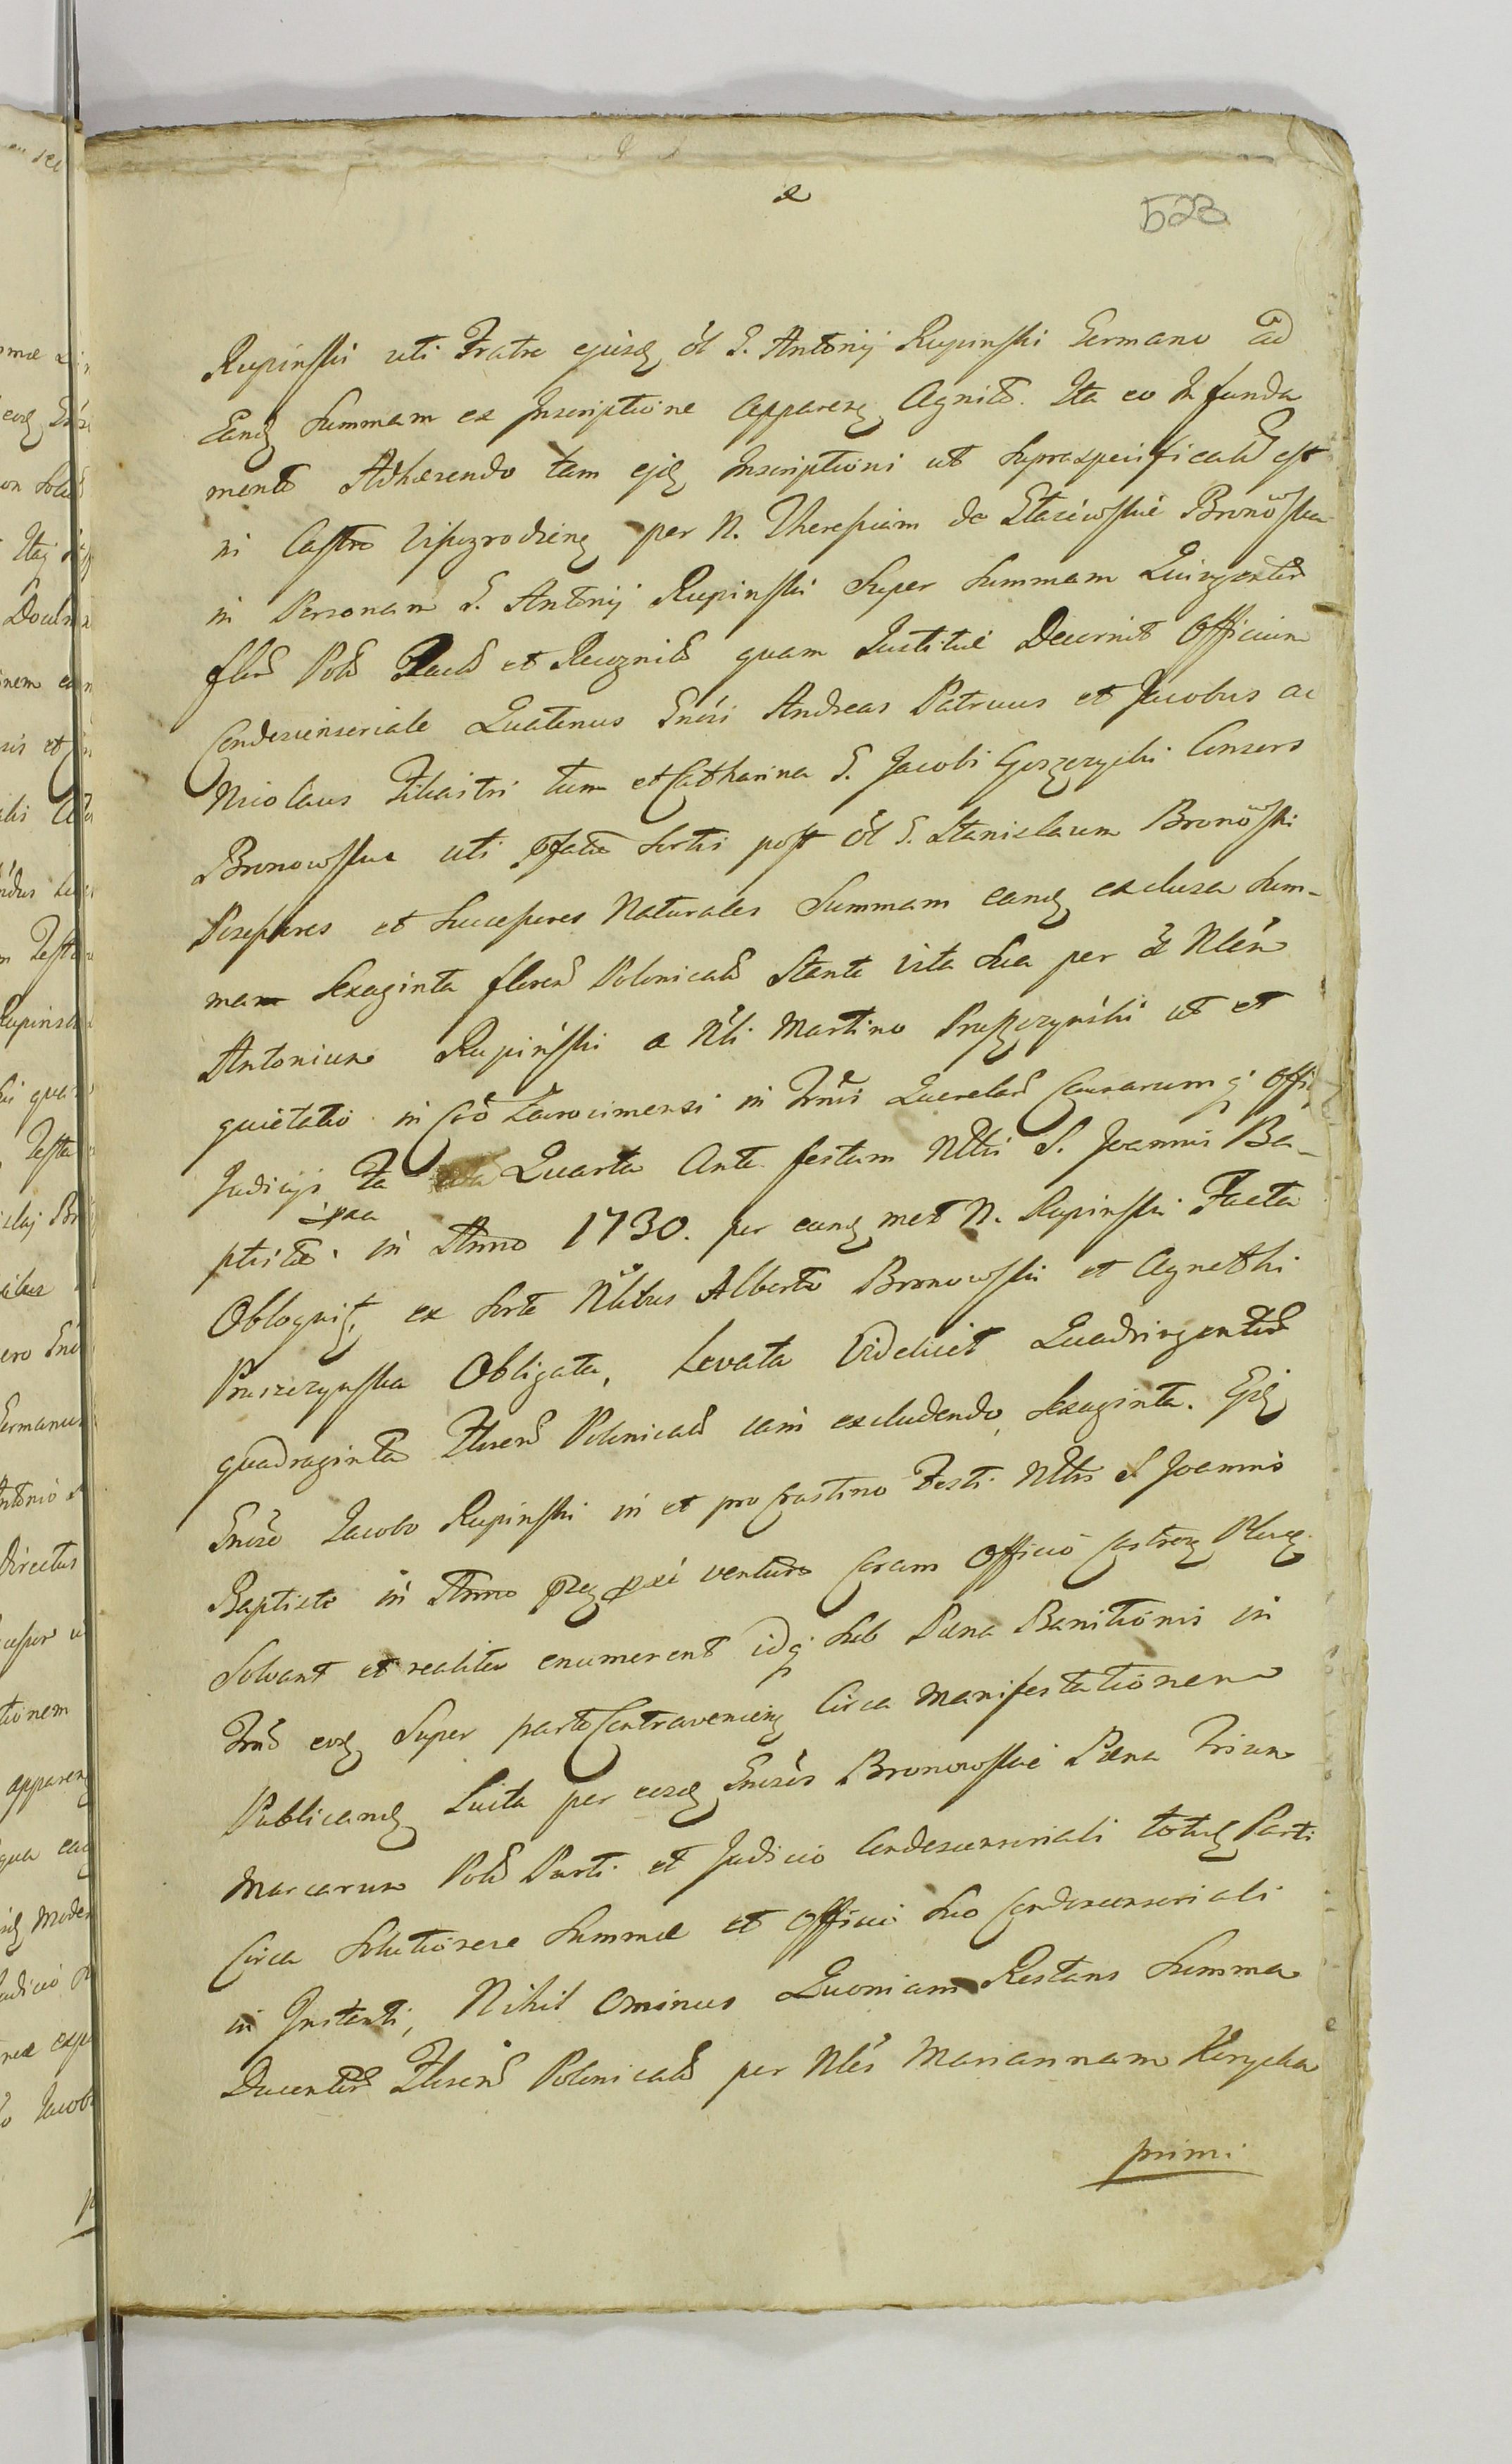 523
Rupinski uti Fratre ejusd ol G. Antonij Rupinski Germano ad
Eand Summam ex Inscriptione Apparen Agnito. Ita eo In funda
mento Adhærendo tam ejusd Inscriptioni ut Supraspecificatu est
in Castro Viszogrodien per N. Theresiam de Staciwskie Bronowska
in Personam G. Antonij Rupinski Super Summam Quingentor
flor Pol Fact et Recognit quam Institui Decernit Officium
Condescensoriale Quatenus Gnosi Andreas Patruus et Jacobus ac
Nicolaus Filiastri tum et Catharina G. Jacobi Gorzyczki Consors
Bronowskie uti fatæ Sortis post ol G. Stanislaum Bronowski
Possessores et Successores Naturales Summam eand exclusa Sum-
mam Sexaginta floren Polonicales Stante vita Sua per ol Nlem
Antonium Rupinski a Nli Martino Pruszczynski ut et
quietatio in Cro Zawrocimensi in Trnis Querelar Causarumq Offi
Judicijs Fa Quarta Ante festum Ntis S. Joannis Ba-
ptistæ ipsa in Anno 1730. per eund met N. Rupinski Facta
Obloquit, ex Sorte Nlibus Alberto Bronowski et Agnethi
Pruszczynska Obligata, Levata Videlicet Quadringentor
quadraginta Floren Polonical iam excludendo Sexaginta. Ejusd
Gnoso Jacobo Rupinski in et pro Crastino Festi Ntis S Joannis
Baptistæ in Anno venturo Coram Officio Castren Plocen
Solvant et realiter enumerent idq Sub Pæna Banitionis in
Trno eod Super parte Contravenien Circa Manifestationem
Publicand Luita per eosd Gnosos Bronowskie Pæna Trium
Marcarum Pol Parti et Judicio Condescensoriali totid Parti
Circa Solutionem Summæ et Officio Suo Condescensoriali
in Instanti, Nihil Ominus Quoniam Restans Summa
Ducentor Floren Polonical per Nles Mariannam
primi